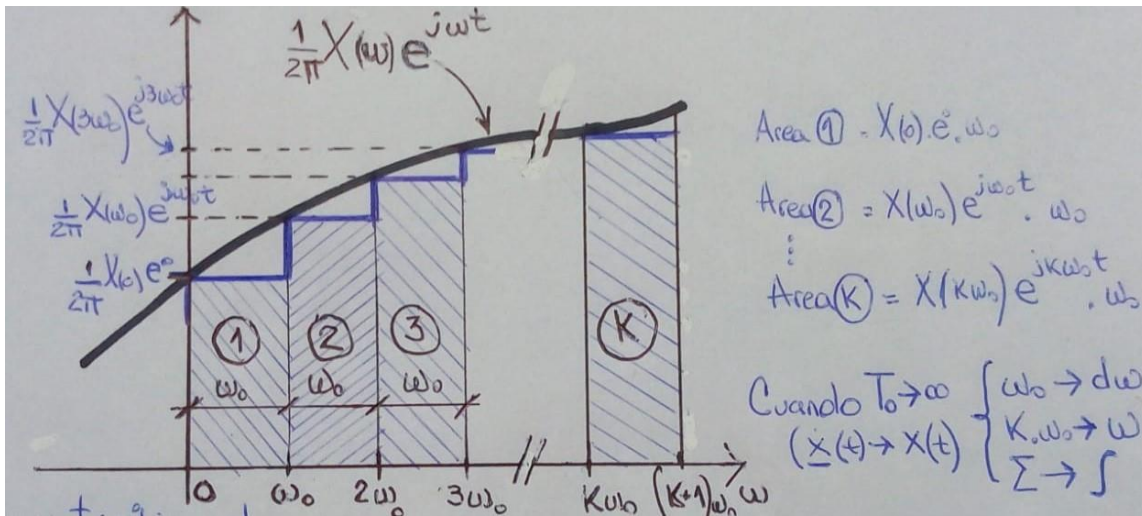 1/2π X(ω) e^{jωt}
1/2π X(3ω₀) e^{j3ω₀t}
1/2π X(ω₀) e^{jω₀t}
1/2π X(0) e⁰
① ② ③ Ⓚ
ω₀ ω₀ ω₀
0 ω₀ 2ω₀ 3ω₀ // Kω₀ (K+1)ω₀ ω
Area ① = X(0).e⁰.ω₀
Area ② = X(ω₀) e^{jω₀t} . ω₀
⋮
Area Ⓚ = X(Kω₀) e^{jkω₀t} . ω₀
Cuando T₀→∞ { ω₀ → dω
(x(t) → x(t) { K.ω₀ → ω
{ Σ → ∫